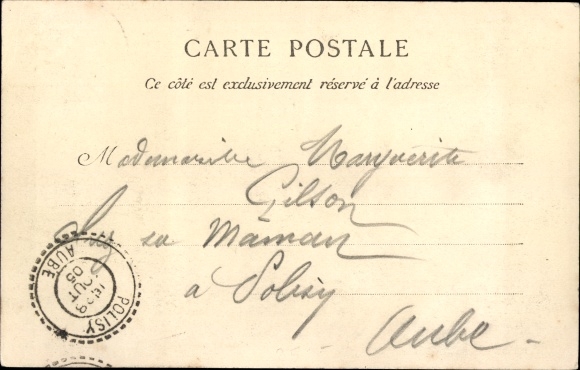 CARTE POSTALE
Ce côté est exclusivement réservé à l'adresse
Mademoiselle Marguerite
Gilson
Chez sa Maman
à Polisy
Aube
POLISY
AUBE
AOUT
05